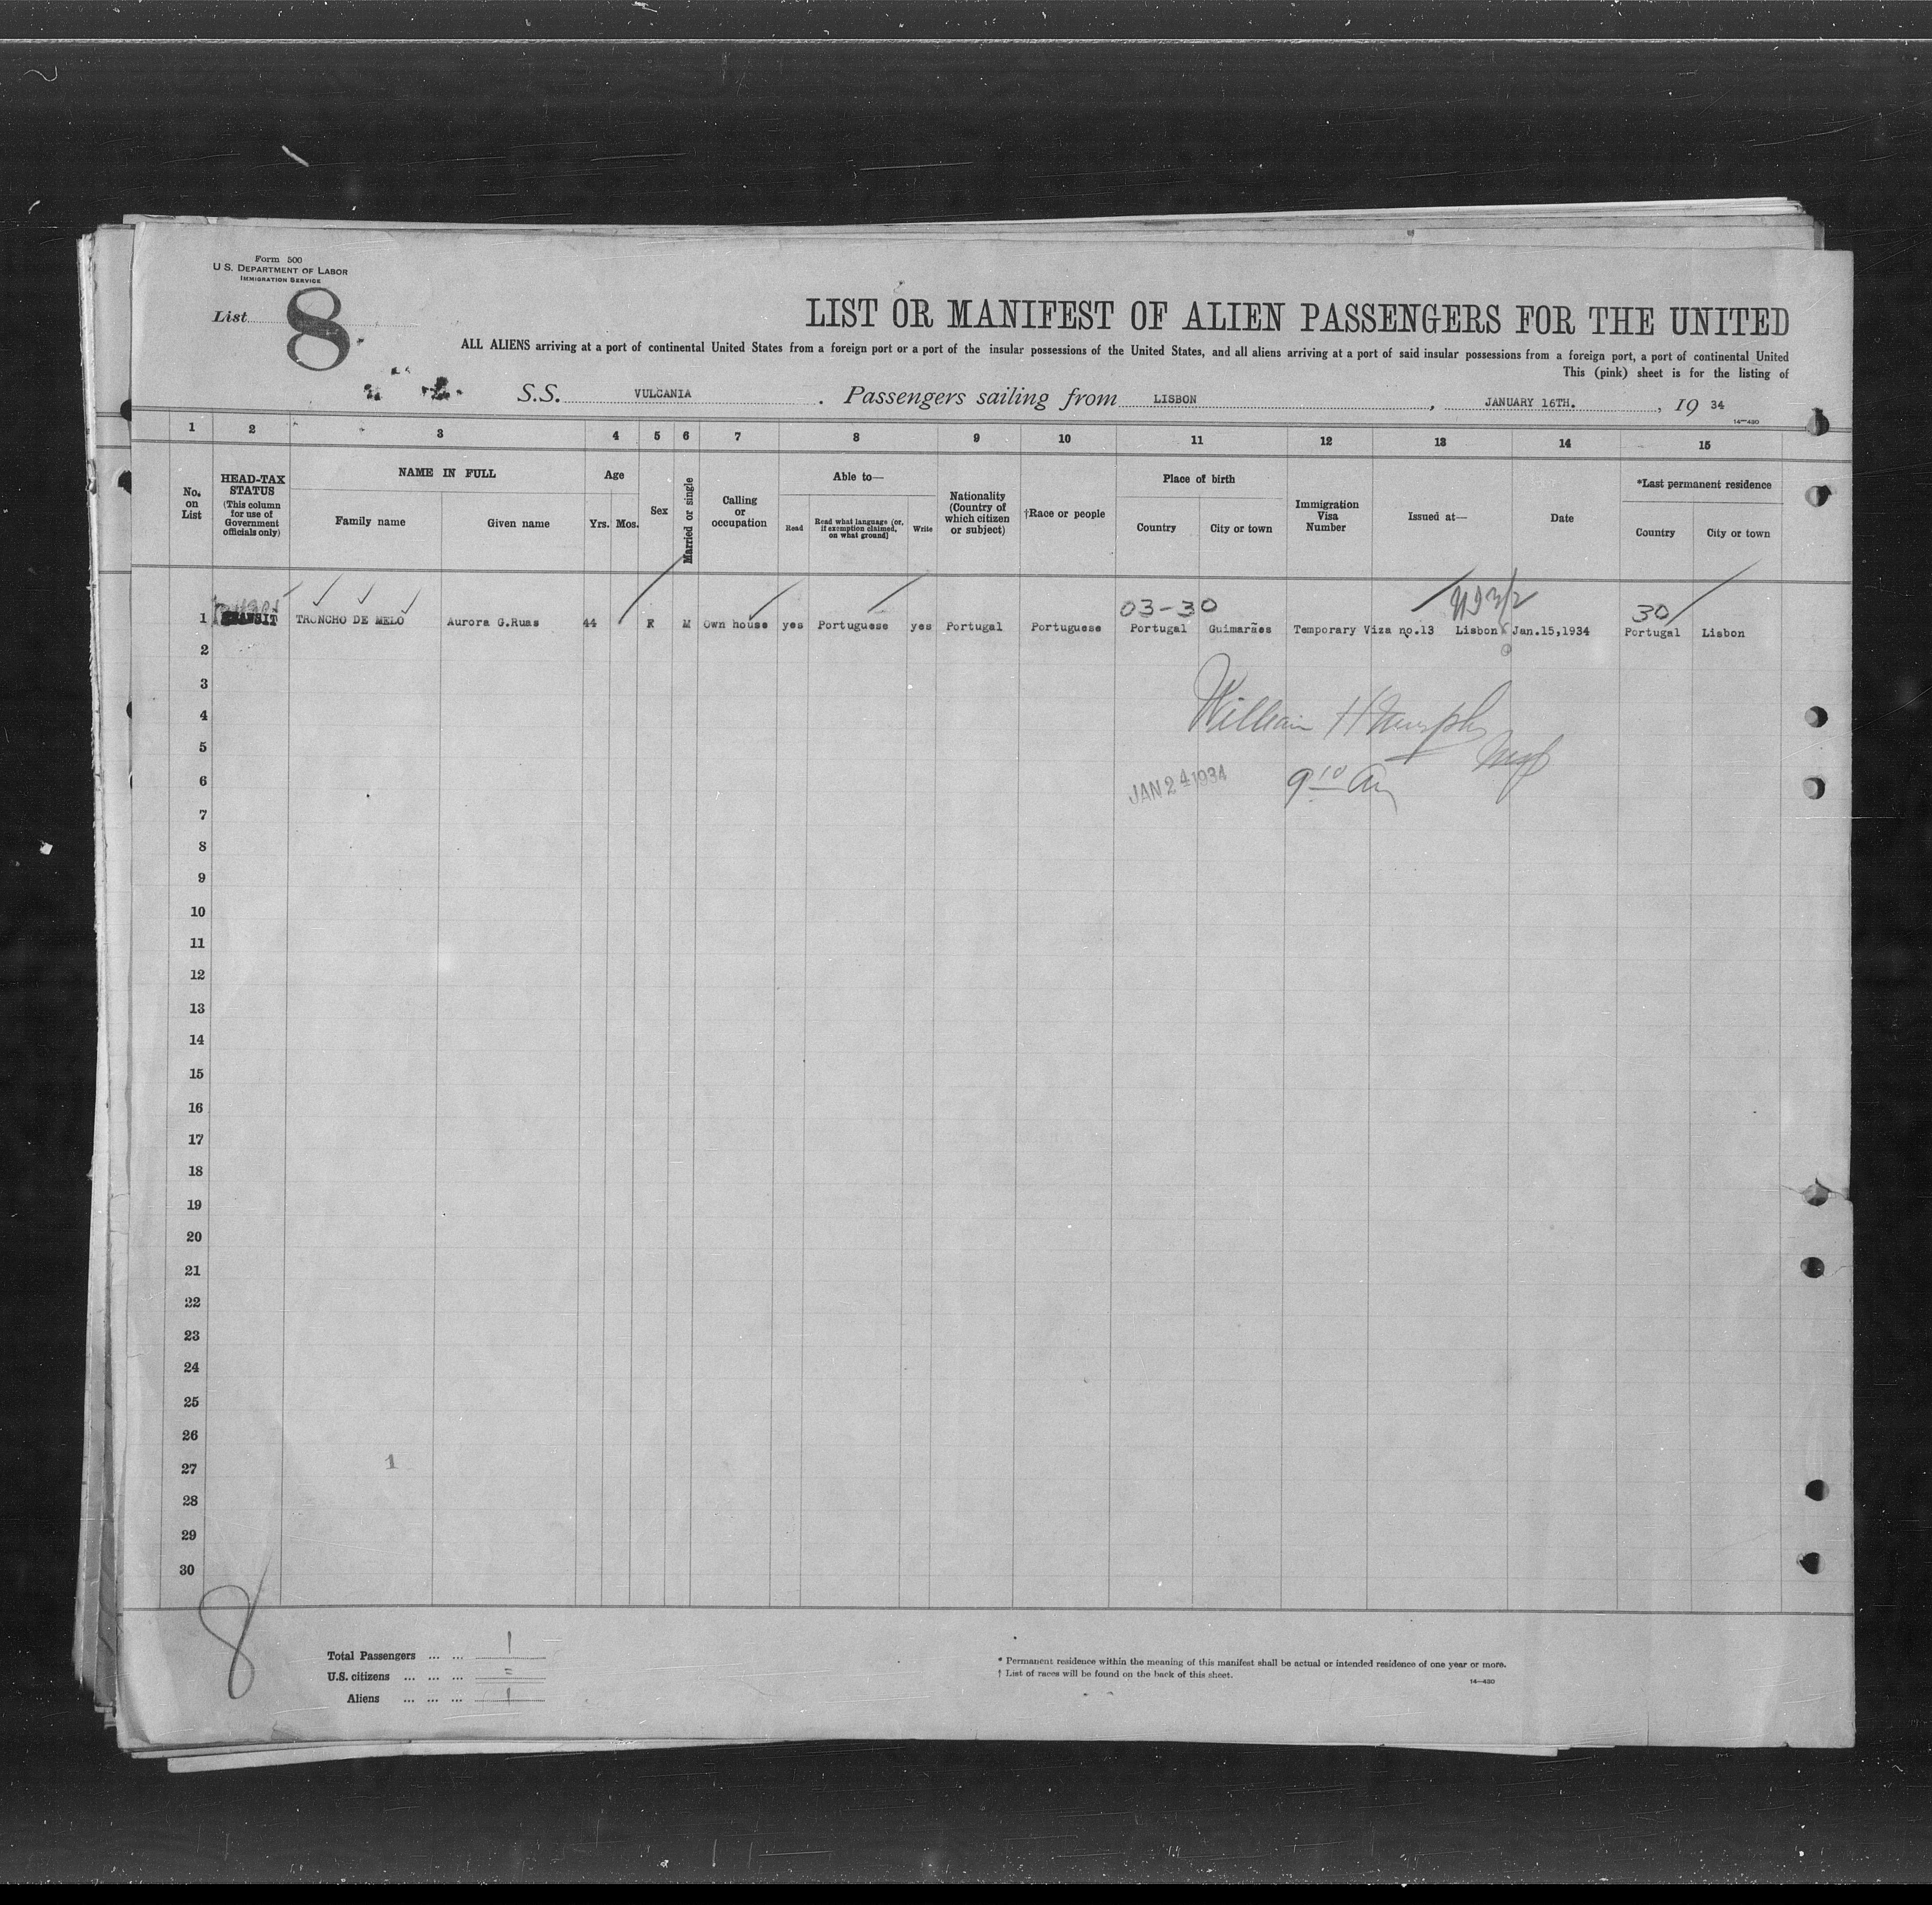 Form 500
U S. DEPARTMENT OF LABOR
IMMIGRATION SERVICE
List 8
LIST OR MANIFEST OF ALIEN PASSENGERS FOR THE UNITED
ALL ALIENS arriving at a port of continental United States from a foreign port or a port of the insular possessions of the United States, and all aliens arriving at a port of said insular possessions from a foreign port, a port of continental United
This (pink) sheet is for the listing of
S.S. VULCANIA . Passengers sailing from LISBON , JANUARY 16TH. , 19 34
14—430
1 2 3 4 5 6 7 8 9 10 11 12 13 14 15
No. on List
HEAD-TAX STATUS (This column for use of Government officials only)
NAME IN FULL
Family name Given name
Age
Yrs. Mos.
Sex
Married or single
Calling or occupation
Able to—
Read
Read what language (or, if exemption claimed, on what ground)
Write
Nationality (Country of which citizen or subject)
†Race or people
Place of birth
Country City or town
Immigration Visa Number
Issued at—
Date
*Last permanent residence
Country City or town
03-30
30
1 TRANSIT TRONCHO DE MELO Aurora G.Ruas 44 F M Own house yes Portuguese yes Portugal Portuguese Portugal Guimarães Temporary Viza no.13 Lisbon Jan.15,1934 Portugal Lisbon
2
3
William H Murphy
4
5
JAN 24 1934
9 10 Am
6
7
8
9
10
11
12
13
14
15
16
17
18
19
20
21
22
23
24
25
26
1
27
28
29
30
8
Total Passengers ... ... 1
U.S. citizens ... ... ... =
Aliens ... ... ... 1
* Permanent residence within the meaning of this manifest shall be actual or intended residence of one year or more.
† List of races will be found on the back of this sheet.
14—430